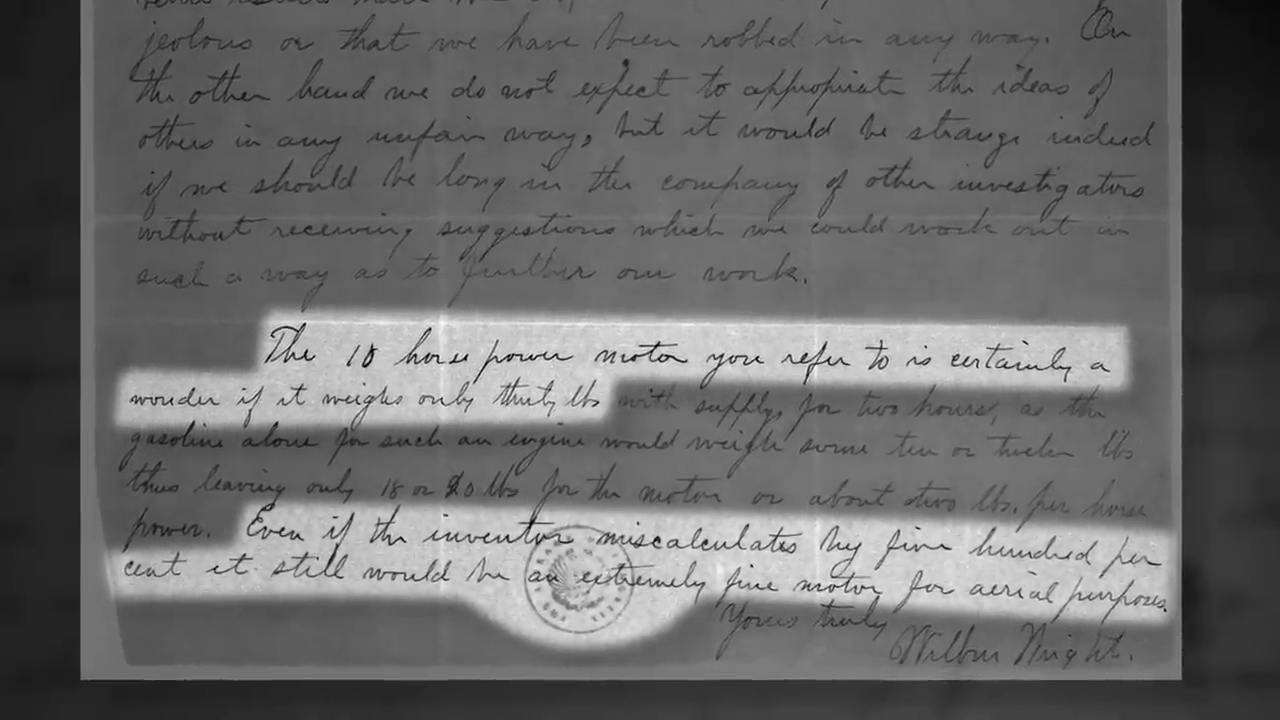 jealous or that we have been robbed in any way. On
the other hand we do not expect to appropriate the ideas of
others in any unfair way, but it would be strange indeed
if we should be long in the company of other investigators
without receiving suggestions which we could work out in
such a way as to further our work.
The 18 horse power motor you refer to is certainly a
wonder if it weighs only thirty lbs with supplys for two hours, as the
gasoline alone for such an engine would weigh some ten or twelve lbs
thus leaving only 18 or 20 lbs for the motor or about two lbs. per horse
power. Even if the inventor miscalculates by five hundred per
cent it still would be an extremely fine motor for aerial purposes.
Yours truly
Wilbur Wright.